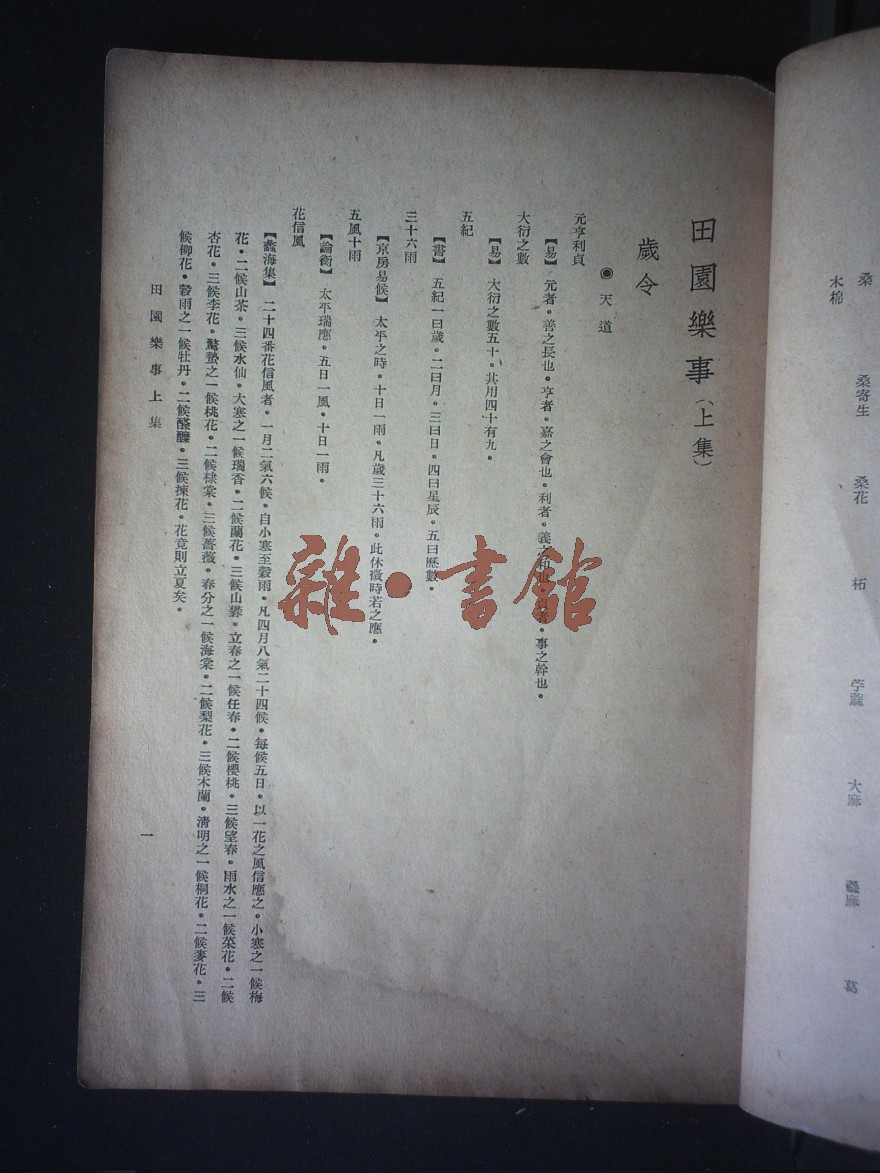 桑 桑寄生 桑花 柘 苧蔴 大麻 葛
木棉
田園樂事(上集)
歲令
◉天道
元亨利貞
【易】 元者。善之長也。亨者。嘉之會也。利者。義之和也。貞者。事之幹也。
大衍之數
【易】 大衍之數五十。其用四十有九。
五紀
【書】 五紀一曰歲。二曰月。三曰日。四曰星辰。五曰厯數。
三十六雨
【京房易候】 太平之時。十日一雨。凡歲三十六雨。此休徵時若之應。
五風十雨
【論衡】 太平瑞應。五日一風。十日一雨。
花信風
【蠡海集】 二十四番花信風者。一月二氣六候。自小寒至穀雨。凡四月八氣二十四候。每候五日。以一花之風信應之。小寒之一候梅
花。二候山茶。三候水仙。大寒之一候瑞香。二候蘭花。三候山礬。立春之一候任春。二候櫻桃。三候望春。雨水之一候菜花。二候
杏花。三候李花。驚蟄之一候桃花。二候棣棠。三候薔薇。春分之一候海棠。二候梨花。三候木蘭。清明之一候桐花。二候麥花。三
候柳花。穀雨之一候牡丹。二候醾。三候揀花。花竟則立夏矣。
田園樂事上集
一
雜·書館